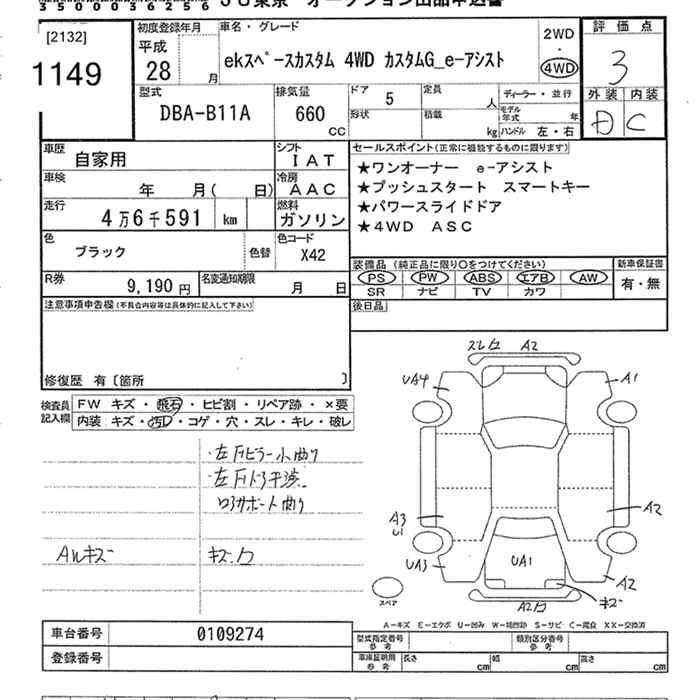 35000036256
ＪＵ東京　オークション出品申込書
[2132]
1149
初度登録年月
平成
28 月
車名・グレード
ekスペースカスタム 4WD カスタムG_e-アシスト
2WD
・
4WD
評価点
3
外装 内装
D C
型式
DBA-B11A
排気量
660
CC
ドア
5
定員
人
形状
積載
kg
ディーラー・並行
モデル年式 年
ハンドル 左・右
車歴
自家用
シフト
IAT
車検
年 月( 日)
冷房
AAC
走行
4万6千591 km
燃料
ガソリン
色
ブラック
色替
色コード
X42
R券
9,190円
名変通知期限
月 日
セールスポイント(正常に機能するものに限ります)
★ワンオーナー　e-アシスト
★プッシュスタート　スマートキー
★パワースライドドア
★4WD　ASC
装備品(純正品に限り○をつけてください)
PS PW ABS エアB AW
SR ナビ TV カワ
新車保証書
有・無
後日品
注意事項申告欄(不具合内容等は具体的に記入して下さい)
修復歴 有〔箇所 〕
検査員記入欄
FW キズ・飛石・ヒビ割・リペア跡・×要
内装 キズ・汚レ・コゲ・穴・スレ・キレ・破レ
・左Fピラー小曲り
・左Fドア干渉
コアサポート曲り
AWキズ
キズ・凹
スレ凹 A2
UA4
A1
A3
U1
A2
UA3
UA1
A2
A2凹
キズ
スペア
A－キズ E－エクボ U－凹み W－補修跡 S－サビ C－腐食 XX－交換済
車台番号 0109274
登録番号
型式指定番号
参考
類別区分番号
参考
車庫証明用
参考
長さ cm
幅 cm
高さ cm